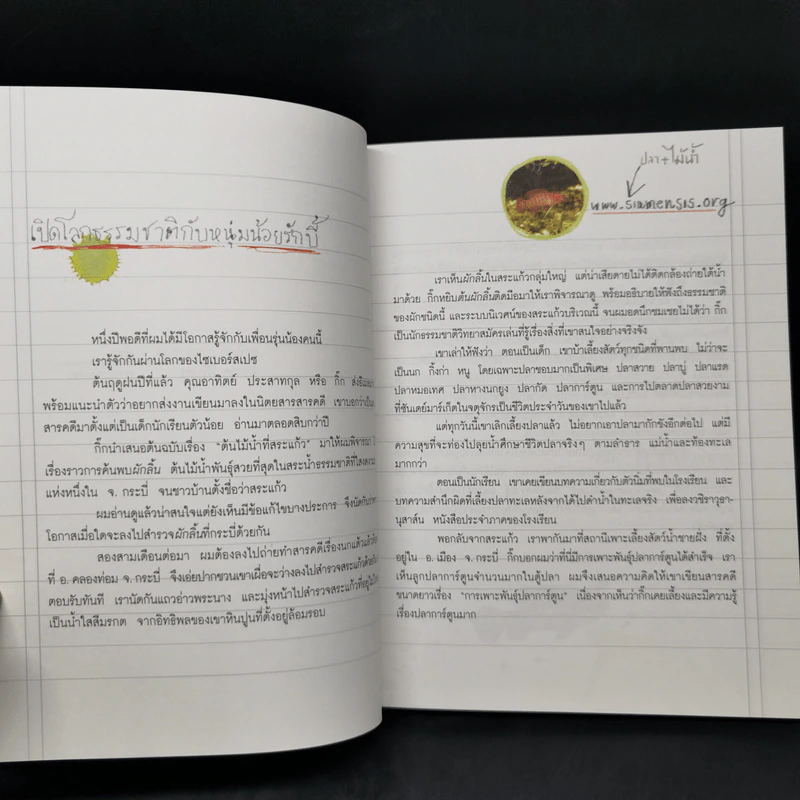 เปิดโลกธรรมชาติกับหนุ่มน้อยรักบี้
หนึ่งปีพอดีที่ผมได้มีโอกาสรู้จักกับเพื่อนรุ่นน้องคนนี้
เรารู้จักกันผ่านโลกของไซเบอร์สเปซ
ต้นฤดูฝนปีที่แล้ว คุณอาทิตย์ ประสาทกุล หรือ กิ๊ก
พร้อมแนะนำตัวว่าอยากส่งงานเขียนมาลงในนิตยสารสารคดี เขาบอกว่าเป็น
สารคดีมาตั้งแต่เป็นเด็กนักเรียนตัวน้อย อ่านมาตลอดสิบกว่าปี
กิ๊กนำเสนอต้นฉบับเรื่อง "ต้นไม้น้ำที่สระแก้ว" มาให้ผมพิจารณา
เรื่องราวการค้นพบผักลิ้น ต้นไม้น้ำพันธุ์สวยที่สุดในสระน้ำธรรมชาติที่ใส
แห่งหนึ่งใน จ. กระบี่ จนชาวบ้านตั้งชื่อว่าสระแก้ว
ผมอ่านดูแล้วน่าสนใจแต่ยังเห็นมีข้อแก้ไขบางประการ จึงนัด
โอกาสเมื่อใดจะลงไปสำรวจผักลิ้นที่กระบี่ด้วยกัน
สองสามเดือนต่อมา ผมต้องลงไปถ่ายทำสารคดีเรื่องนกแต้วแล้ว
ที่ อ. คลองท่อม จ. กระบี่ จึงเอ่ยปากชวนเขาเผื่อจะว่างลงไปสำรวจสระแก้วด้วย
ตอบรับทันที เรานัดกันแถวอ่าวพระนาง และมุ่งหน้าไปสำรวจสระแก้วที่อยู่
เป็นน้ำใสสีมรกต จากอิทธิพลของเขาหินปูนที่ตั้งอยู่ล้อมรอบ
ปลา+ไม้น้ำ
www.siamensis.org
เราเห็นผักลิ้นในสระแก้วกลุ่มใหญ่ แต่น่าเสียดายไม่ได้ติดกล้องถ่ายใต้น้ำ
มาด้วย กิ๊กหยิบต้นผักลิ้นติดมือมาให้เราพิจารณาดู พร้อมอธิบายให้ฟังถึงธรรมชาติ
ของผักชนิดนี้ และระบบนิเวศน์ของสระแก้วบริเวณนี้ จนผมอดนึกชมเชยไม่ได้ว่า กิ๊ก
เป็นนักธรรมชาติวิทยาสมัครเล่นที่รู้เรื่องสิ่งที่เขาสนใจอย่างจริงจัง
เขาเล่าให้ฟังว่า ตอนเป็นเด็ก เขาบ้าเลี้ยงสัตว์ทุกชนิดที่พานพบ ไม่ว่าจะ
เป็นนก กิ้งก่า หนู โดยเฉพาะปลาชอบมากเป็นพิเศษ ปลาสวาย ปลาบู่ ปลาแรด
ปลาหมอเทศ ปลาหางนกยูง ปลากัด ปลาการ์ตูน และการไปตลาดปลาสวยงาม
ที่ซันเดย์มาร์เก็ตในจตุจักรเป็นชีวิตประจำวันของเขาไปแล้ว
แต่ทุกวันนี้เขาเลิกเลี้ยงปลาแล้ว ไม่อยากเอาปลามากักขังอีกต่อไป แต่มี
ความสุขที่จะท่องไปลุยน้ำศึกษาชีวิตปลาจริงๆ ตามลำธาร แม่น้ำและท้องทะเล
มากกว่า
ตอนเป็นนักเรียน เขาเคยเขียนบทความเกี่ยวกับตัวนิ่มที่พบในโรงเรียน และ
บทความสำนึกผิดที่เลี้ยงปลาทะเลหลังจากได้ไปดำน้ำในทะเลจริง เพื่อลงวชิราวุธา-
นุสาส์น หนังสือประจำภาคของโรงเรียน
พอกลับจากสระแก้ว เราพากันมาที่สถานีเพาะเลี้ยงสัตว์น้ำชายฝั่ง ที่ตั้ง
อยู่ใน อ. เมือง จ. กระบี่ กิ๊กบอกผมว่าที่นี่มีการเพาะพันธุ์ปลาการ์ตูนได้สำเร็จ เรา
เห็นลูกปลาการ์ตูนจำนวนมากในตู้ปลา ผมจึงเสนอความคิดให้เขาเขียนสารคดี
ขนาดยาวเรื่อง "การเพาะพันธุ์ปลาการ์ตูน" เนื่องจากเห็นว่ากิ๊กเคยเลี้ยงและมีความรู้
เรื่องปลาการ์ตูนมาก